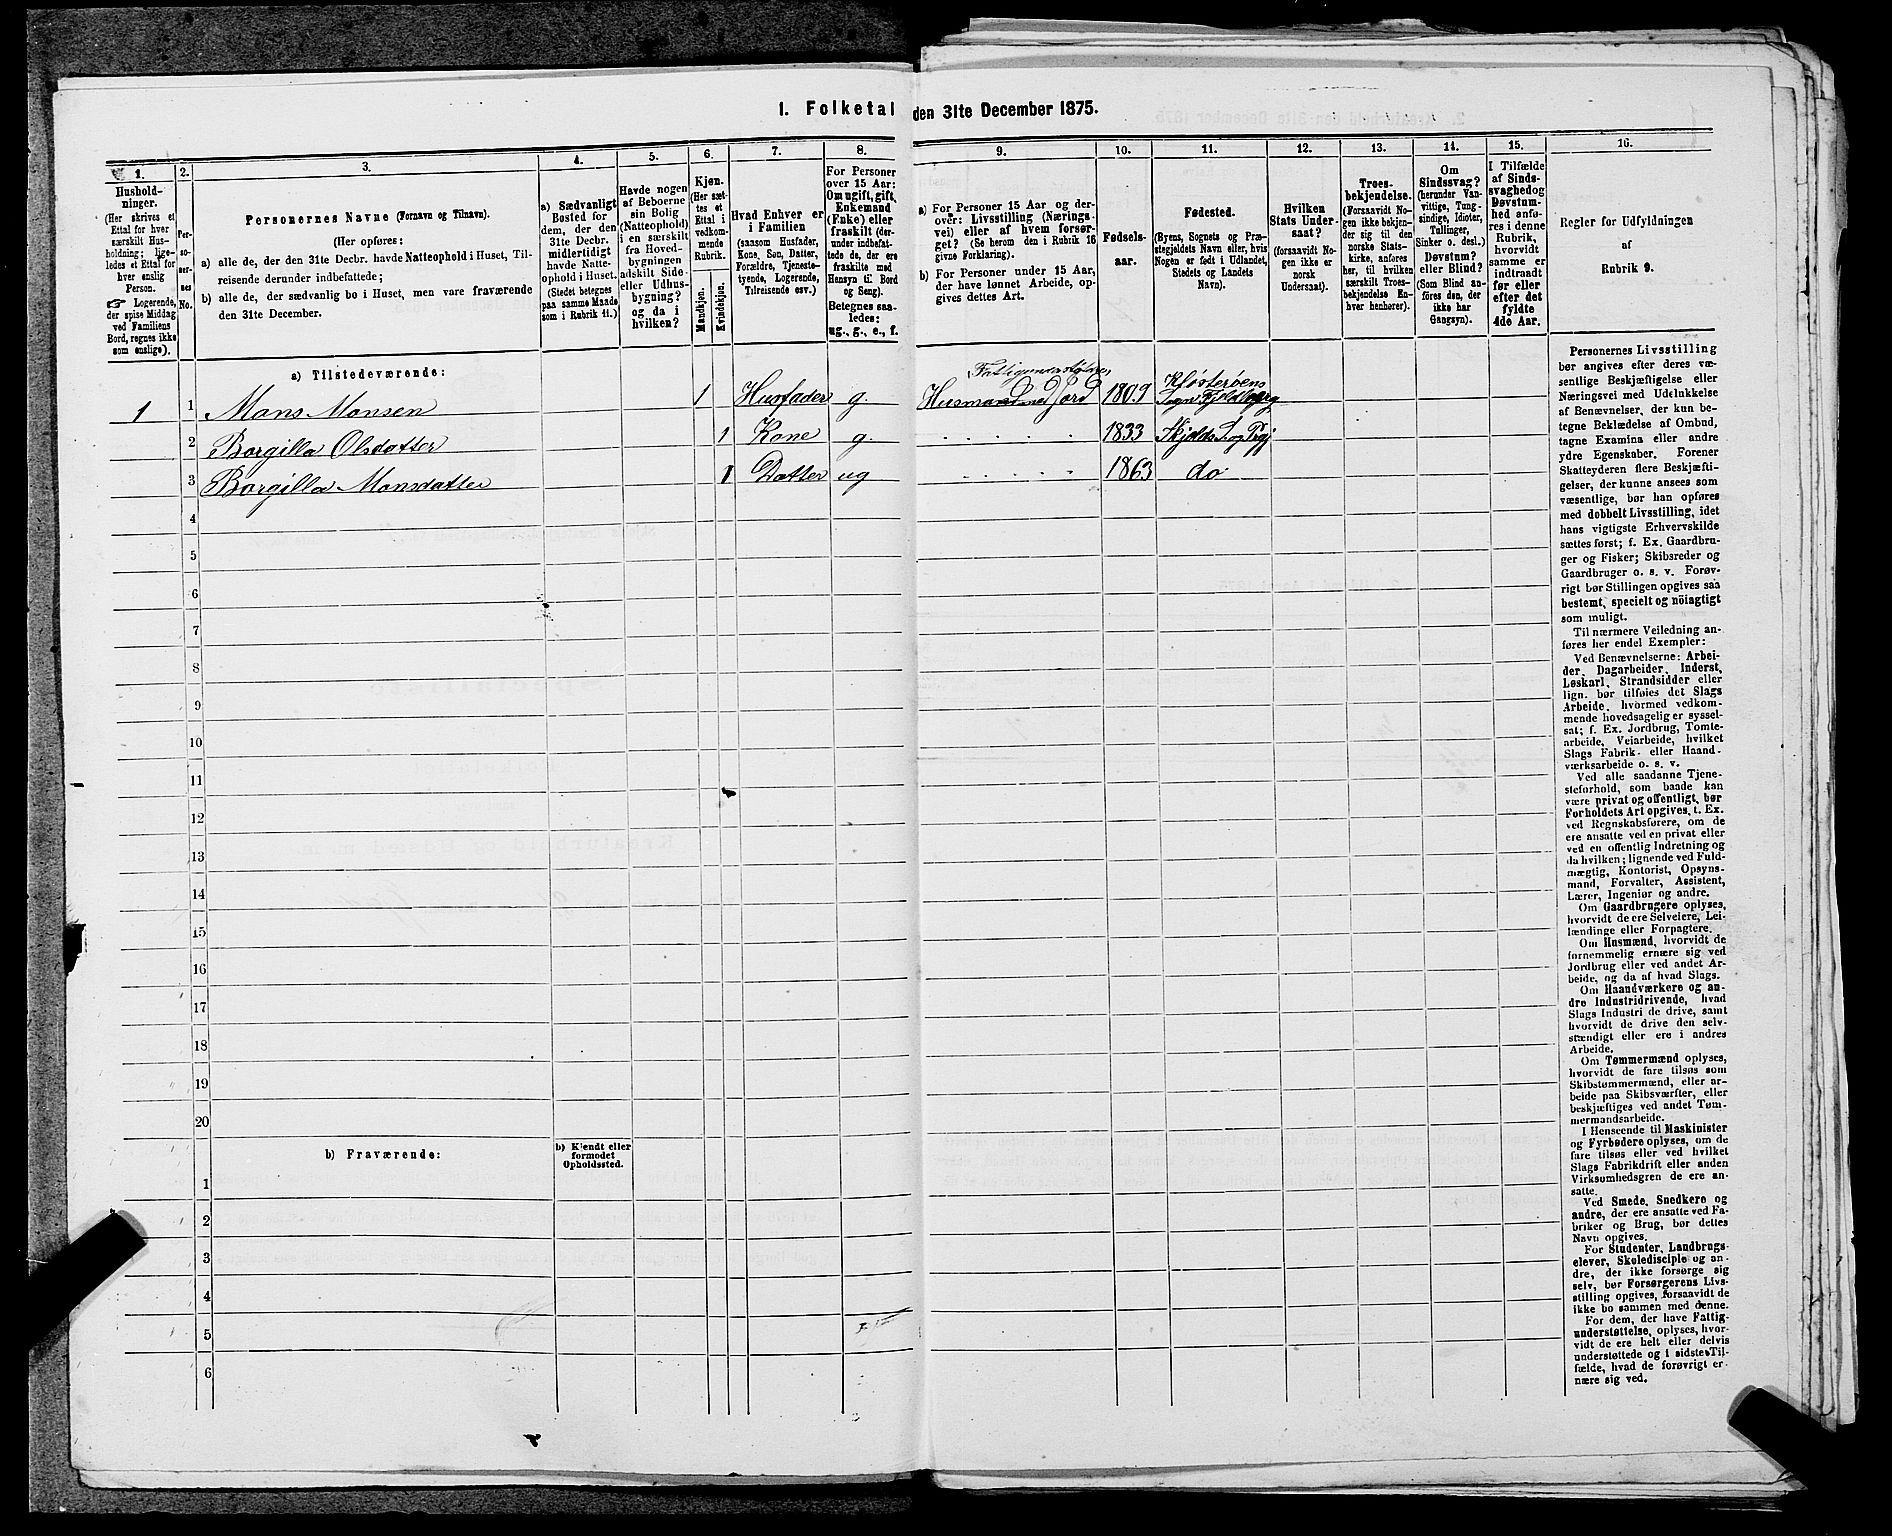 I. Folketal den 31te December 1875.
1.
Hushold-
ninger.
(Her skrives et
Ettal for hver
særskilt Hus-
holdning; lige-
ledes et Ettal for
hver enslig
Person.
☞ Logerende,
der spise Middag
ved Familiens
Bord, regnes ikke
som enslige).
2.
Per-
so-
ner-
nes
No.
3.
Personernes Navne (Fornavn og Tilnavn).
(Her opføres:
a) alle de, der den 31te Decbr. havde Natteophold i Huset, Til-
reisende derunder indbefattede;
b) alle de, der sædvanlig bo i Huset, men vare fraværende
den 31te December.
4.
a) Sædvanligt
Bosted for
dem, der den
31te Decbr.
midlertidigt
havde Natte-
ophold i Huset.
(Stedet betegnes
paa samme Maade
som i Rubrik 11.)
5.
Havde nogen
af Beboerne
sin Bolig
(Natteophold)
i en særskilt
fra Hoved-
bygningen
adskilt Side-
eller Udhus-
bygning?
og da i
hvilken?
6.
Kjøn.
(Her sæt-
tes et
Ettal i
vedkom-
mende
Rubrik.
Mandkjøn.
Kvindekjøn.
7.
Hvad Enhver er
i Familien
(saasom Husfader,
Kone, Søn, Datter,
Forældre, Tjeneste-
tyende, Logerende,
Tilreisende osv.)
8.
For Personer
over 15 Aar:
Om ugift, gift,
Enkemand
(Enke) eller
fraskilt (der-
under indbefat-
tede de, der ere
fraskilte med
Hensyn til Bord
og Seng).
Betegnes saa-
ledes:
ug., g., e., f.
9.
a) For Personer 15 Aar og der-
over: Livsstilling (Nærings-
vei) eller af hvem forsør-
get? (Se herom den i Rubrik 16
givne Forklaring).
b) For Personer under 15 Aar,
der have lønnet Arbeide, op-
gives dettes Art.
10.
Fødsels-
aar.
11.
Fødested.
(Byens, Sognets og Præ-
stegjeldets Navn eller, hvis
Nogen er født i Udlandet,
Stedets og Landets
Navn).
12.
Hvilken
Stats Under-
saat?
(forsaavidt No-
gen ikke er
norsk
Undersaat).
13.
Troes-
bekjendelse.
(Forsaavidt No-
gen ikke bekjen-
der sig til den
norske Stats-
kirke, anføres
her, til hvilken
særskilt Troes-
bekjendelse En-
hver henhører).
14.
Om
Sindssvag?
(herunder Van-
vittige, Tung-
sindige, Idioter,
Tullinger,
Sinker o. desl.)
Døvstum?
eller Blind?
(Som Blind an-
føres den, der
ikke har
Gangsyn).
15.
I Tilfælde
af Sinds-
svaghed og
Døvstum-
hed anfø-
res i denne
Rubrik,
hvorvidt
samme er
indtraadt
før eller
efter det
fyldte
4de Aar.
16.
Regler for Udfyldningen
af
Rubrik 9.
a) Tilstedeværende:
1 1 Mons Monsen 1 Husfader g. Husmand med Jord Fattigunderstøttes 1809 Klosterøens Sogn Fjeldberg
2 Borgilla Olsdatter 1 Kone g. 1833 Skjolds S. og Prgj
3 Borgilla Monsdatter 1 Datter ug 1863 do
4
5
6
7
8
9
10
11
12
13
14
15
16
17
18
19
20
b) Fraværende:
b) Kjendt eller
formodet
Opholdssted.
1
2
3
4
5
6
Personernes Livsstilling
bør angives efter deres væ-
sentlige Beskjæftigelse eller
Næringsvei med Udelukkelse
af Benævnelser, der kun be-
tegne Beklædelse af Ombud,
tagne Examina eller andre
ydre Egenskaber. Forener
Skatteyderen flere Beskjæfti-
gelser, der kunne ansees som
væsentlige, bør han opføres
med dobbelt Livsstilling, idet
hans vigtigste Erhvervskilde
sættes først; f. Ex. Gaardbru-
ger og Fisker; Skibsreder og
Gaardbruger o. s. v. Forøv-
rigt bør Stillingen opgives saa
bestemt, specielt og nöiagtigt
som muligt.
Til nærmere Veiledning an-
føres her endel Exempler:
Ved Benævnelserne: Arbei-
der, Dagarbeider, Inderst,
Løskarl, Strandsidder eller
lign. bør tilføies det Slags
Arbeide, hvormed vedkom-
mende hovedsagelig er syssel-
sat; f. Ex. Jordbrug, Tomte-
arbeide, Veiarbeide, hvilket
Slags Fabrik- eller Haand-
værksarbeide o. s. v.
Ved alle saadanne Tjene-
steforhold, som baade kan
være privat og offentligt, bør
Forholdets Art opgives, t. Ex.
ved Regnskabsførere, om de
ere ansatte ved en privat eller
ved en offentlig Indretning og
da hvilken; lignende ved Fuld-
mægtig, Kontorist, Opsyns-
mand, Forvalter, Assistent,
Lærer, Ingeniør og andre.
Om Gaardbrugere oplyses,
hvorvidt de ere Selveiere, Lei-
lændinge eller Forpagtere.
Om Husmænd, hvorvidt de
fornemmelig ernære sig ved
Jordbrug eller ved andet Ar-
beide, og da af hvad Slags.
Om Haandværkere og an-
dre Industridrivende, hvad
Slags Industri de drive, samt
hvorvidt de drive den selv-
stændigt eller ere i andres
Arbeide.
Om Tømmermænd oplyses,
hvorvidt de fare tilsøs som
Skibstømmermænd, eller ar-
beide paa Skibsværfter, eller
beskjæftiges ved andet Tøm-
mermandsarbeide.
I Henseende til Maskinister
og Fyrbødere oplyses, om de
fare tilsøs eller ved hvilket
Slags Fabrikdrift eller anden
Virksomhedsgren de ere an-
satte.
Ved Smede, Snedkere og
andre, der ere ansatte ved Fa-
briker og Brug, bør dettes
Navn opgives.
For Studenter, Landbrugs-
elever, Skoledisciple og an-
dre, der ikke forsørge sig
selv, bør Forsørgerens Livs-
stilling opgives, forsaavidt de
ikke bo sammen med denne.
For dem, der have Fattig-
understøttelse, oplyses, hvor-
vidt de ere helt eller delvis
understøttede og i sidste Til-
fælde, hvad de forøvrigt er-
nære sig ved.